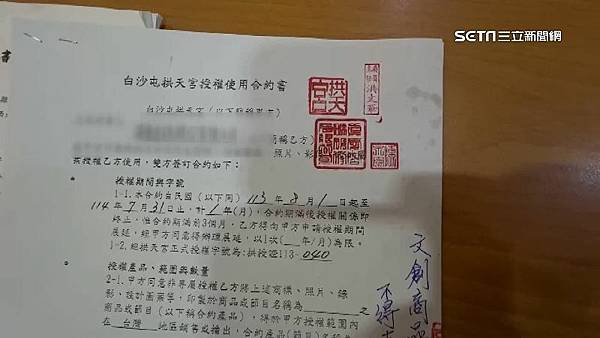 SETN三立新聞網
書
白沙屯拱天宮授權使用合約書
拱天
宮
白沙屯拱天宮
簡稱乙方)
照片、影
授權乙方使用,雙方簽訂合約如下:
授權期間與字號
1-1.本合約自民國(以下同)113年8月1日起至
114年7月31日止,計1年(月),合約期滿後授權關係即
終止,惟合約期滿前3個月,乙方得向甲方申請授權期間
展延,經甲方同意得辦理展延,以1次(__年/月)為限。
1-2.經拱天宮正式授權字號為:拱授證113-040
授權產品、範圍與數量
2-1.甲方同意非專屬授權乙方將上述商標、照片、錄
影、設計圖案等,印製於商品或節目名稱為
之
商品或節目(以下稱合約產品),得於甲方授權範圍內
在 台灣 地區銷售或播出,合約產品(節目)名稱
文創商品
不得